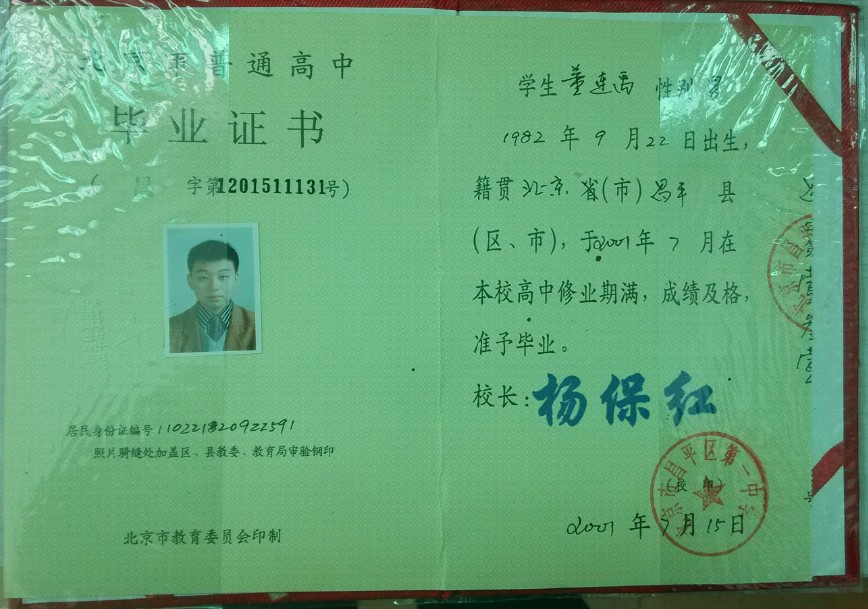 北京市普通高中
毕业证书
(昌 字第1201511131号)
居民身份证编号:
照片骑缝处加盖区、县教委、教育局审验钢印
北京市教育委员会印制
学生董连禹 性别男
1982年9月22日出生,
籍贯北京省(市)昌平县
(区、市),于2001年7月在
本校高中修业期满,成绩及格,
准予毕业。
校长:杨保红
北京市昌平区第一中学
(校印)
2001年7月15日